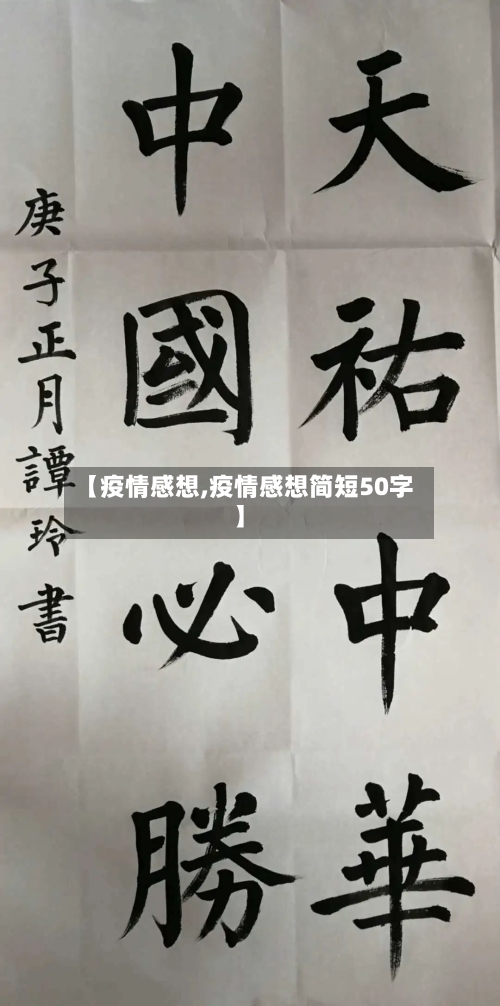 天祐中華
中國必勝
庚子正月譚玲書
【疫情感想,疫情感想简短50字
】